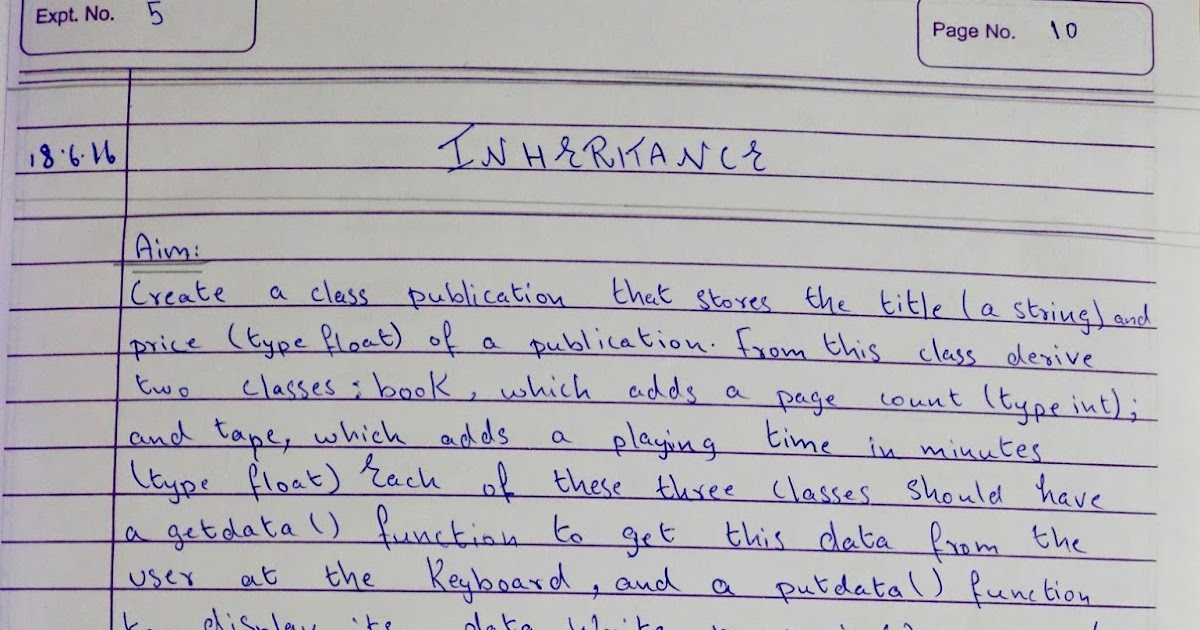 Expt. No. 5
Page No. 10
18.6.16
INHERITANCE
Aim:
Create a class publication that stores the title (a string) and
price (type float) of a publication. From this class derive
two classes: book, which adds a page count (type int);
and tape, which adds a playing time in minutes
(type float) Each of these three classes should have
a getdata() function to get this data from the
user at the Keyboard, and a putdata() function
to display its data Write